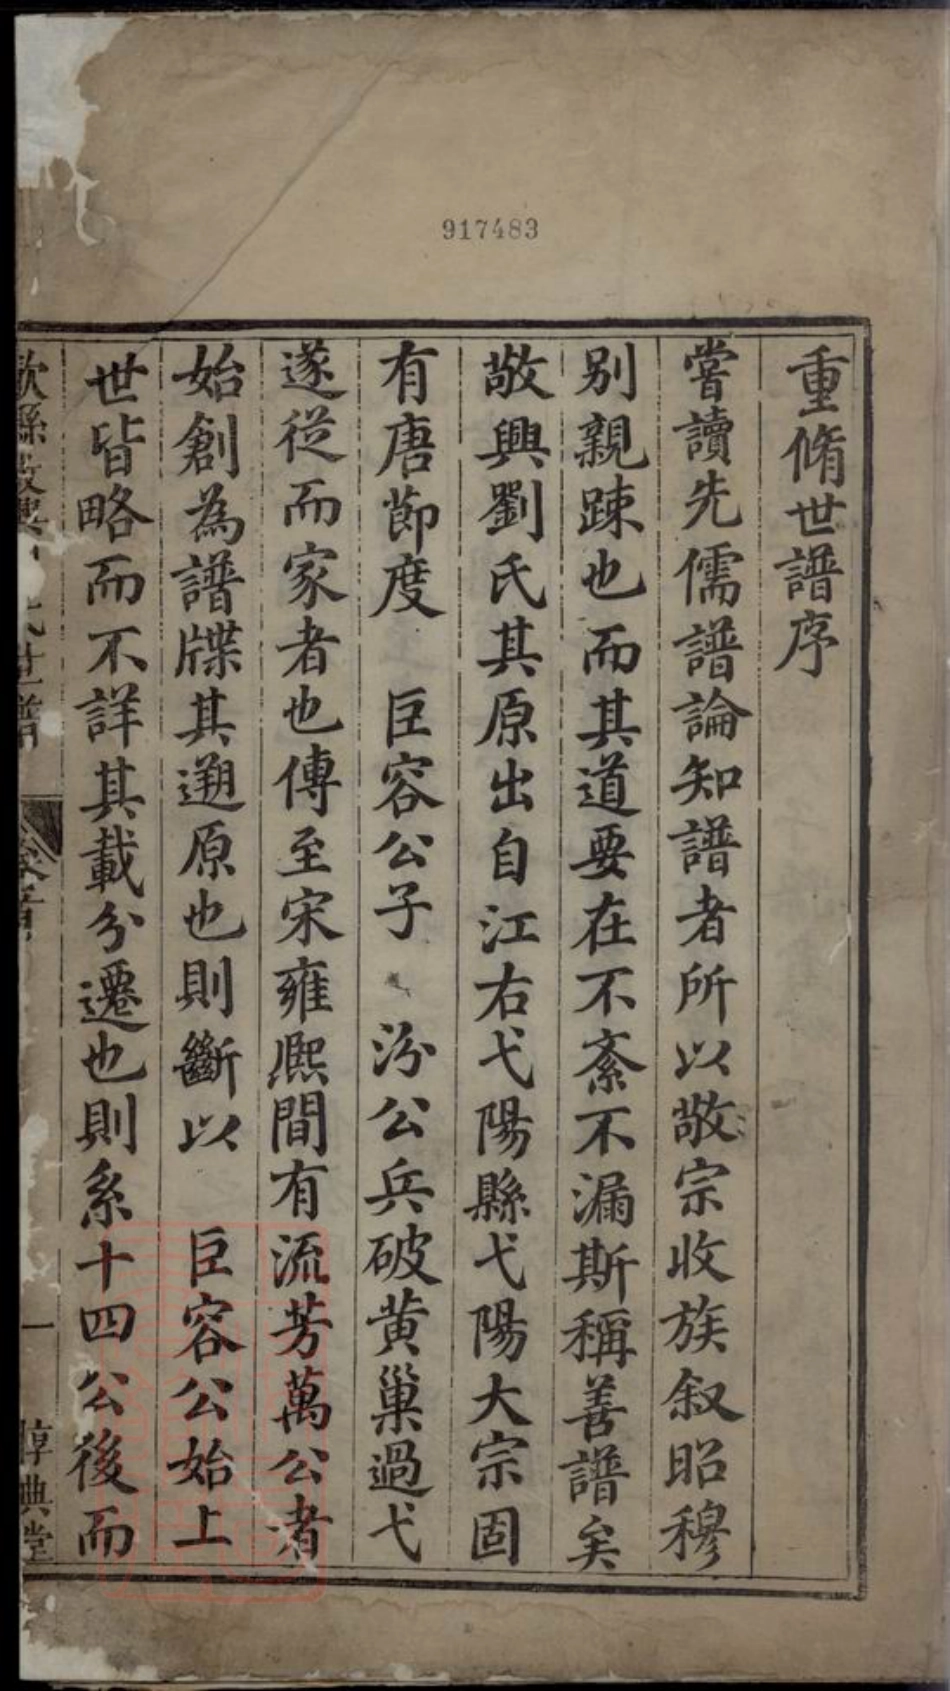 917483
重脩世譜序
嘗讀先儒譜論知譜者所以敬宗收族叙昭穆
别親踈也而其道要在不紊不漏斯稱善譜矣
敬興劉氏其原出自江右弋陽縣弋陽大宗固
有唐節度 巨容公子 汾公兵破黄巢過弋
遂從而家者也傳至宋雍熈間有流芳萬公者
始創為譜牒其遡原也則斷以 巨容公始上
世皆略而不詳其載分遷也則系十四公後而
歙縣 氏世譜 卷首 一 惇典堂